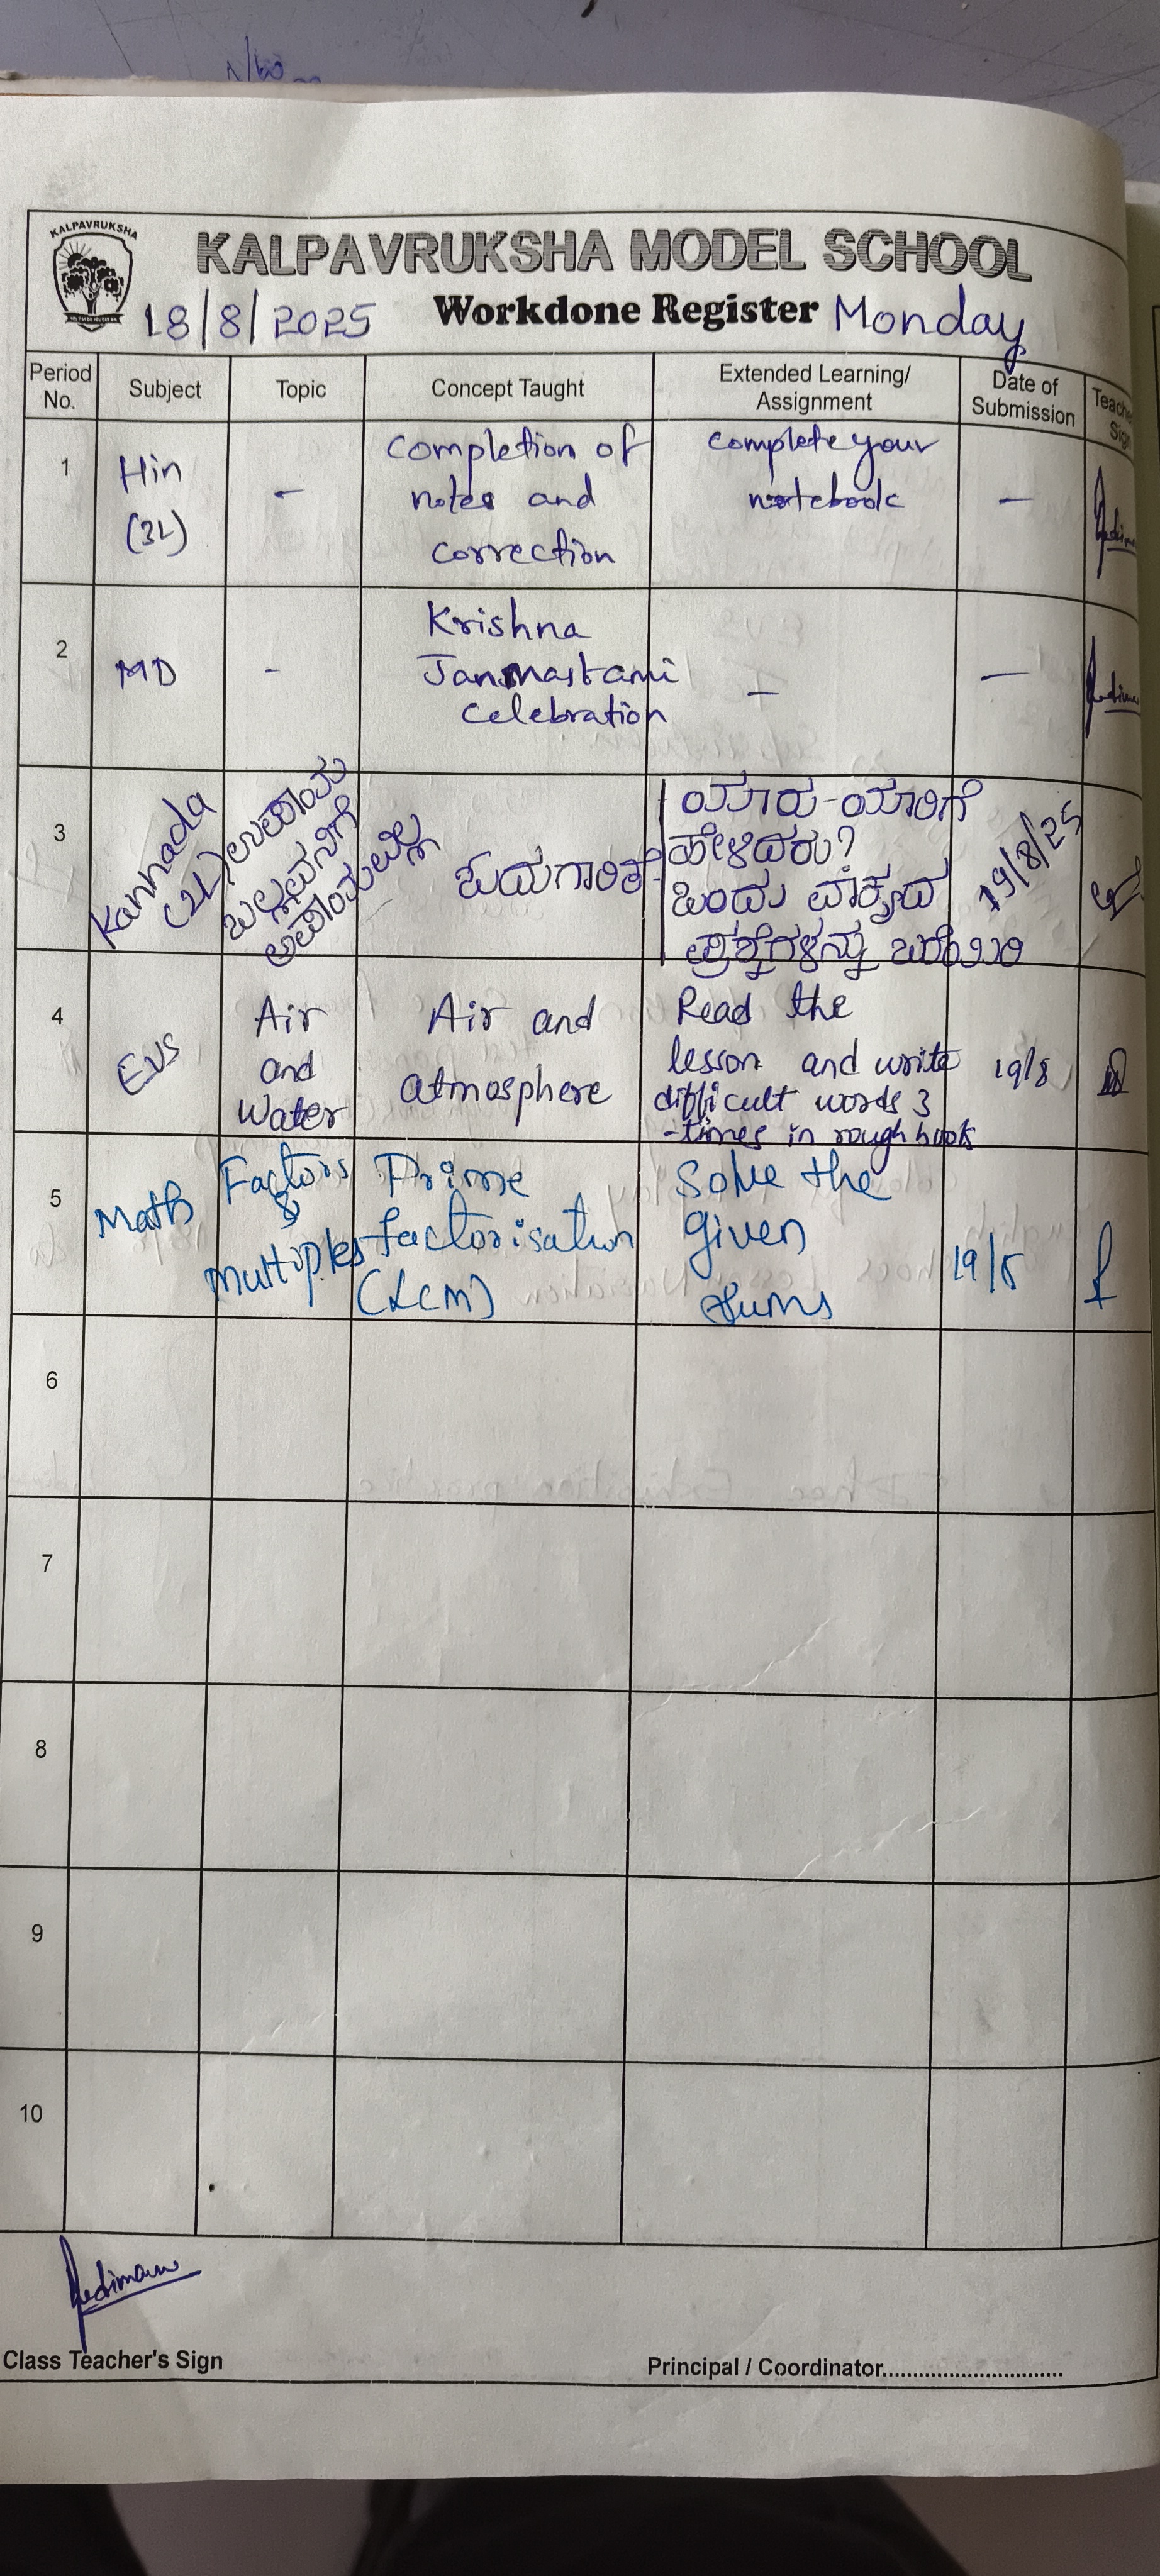 KALPAVRUKSHA
KALPAVRUKSHA MODEL SCHOOL
18/8/2025 Workdone Register Monday
Period No. Subject Topic Concept Taught Extended Learning/ Assignment Date of Submission
1 Hin (3L) - completion of notes and correction complete your notebook -
2 MD - Krishna Janmastami celebration - -
3 Kannada (2L) ಉಪಾಯ ಬಲ್ಲವನಿಗೆ ಅಪಾಯವಿಲ್ಲ ಓದುಗಾರಿಕೆ ಯಾರು-ಯಾರಿಗೆ ಹೇಳಿದರು? ಒಂದು ವಾಕ್ಯದ ಪ್ರಶ್ನೆಗಳನ್ನು ಬರೆಯಿರಿ 19/8/25
4 EVS Air and Water Air and atmosphere Read the lesson and write difficult words 3 -times in rough book 19/8
5 Maths Factors & Multiples Prime factorisation (LCM) Solve the given sums 19/8
6
7
8
9
10
Class Teacher's Sign
Principal / Coordinator..............................